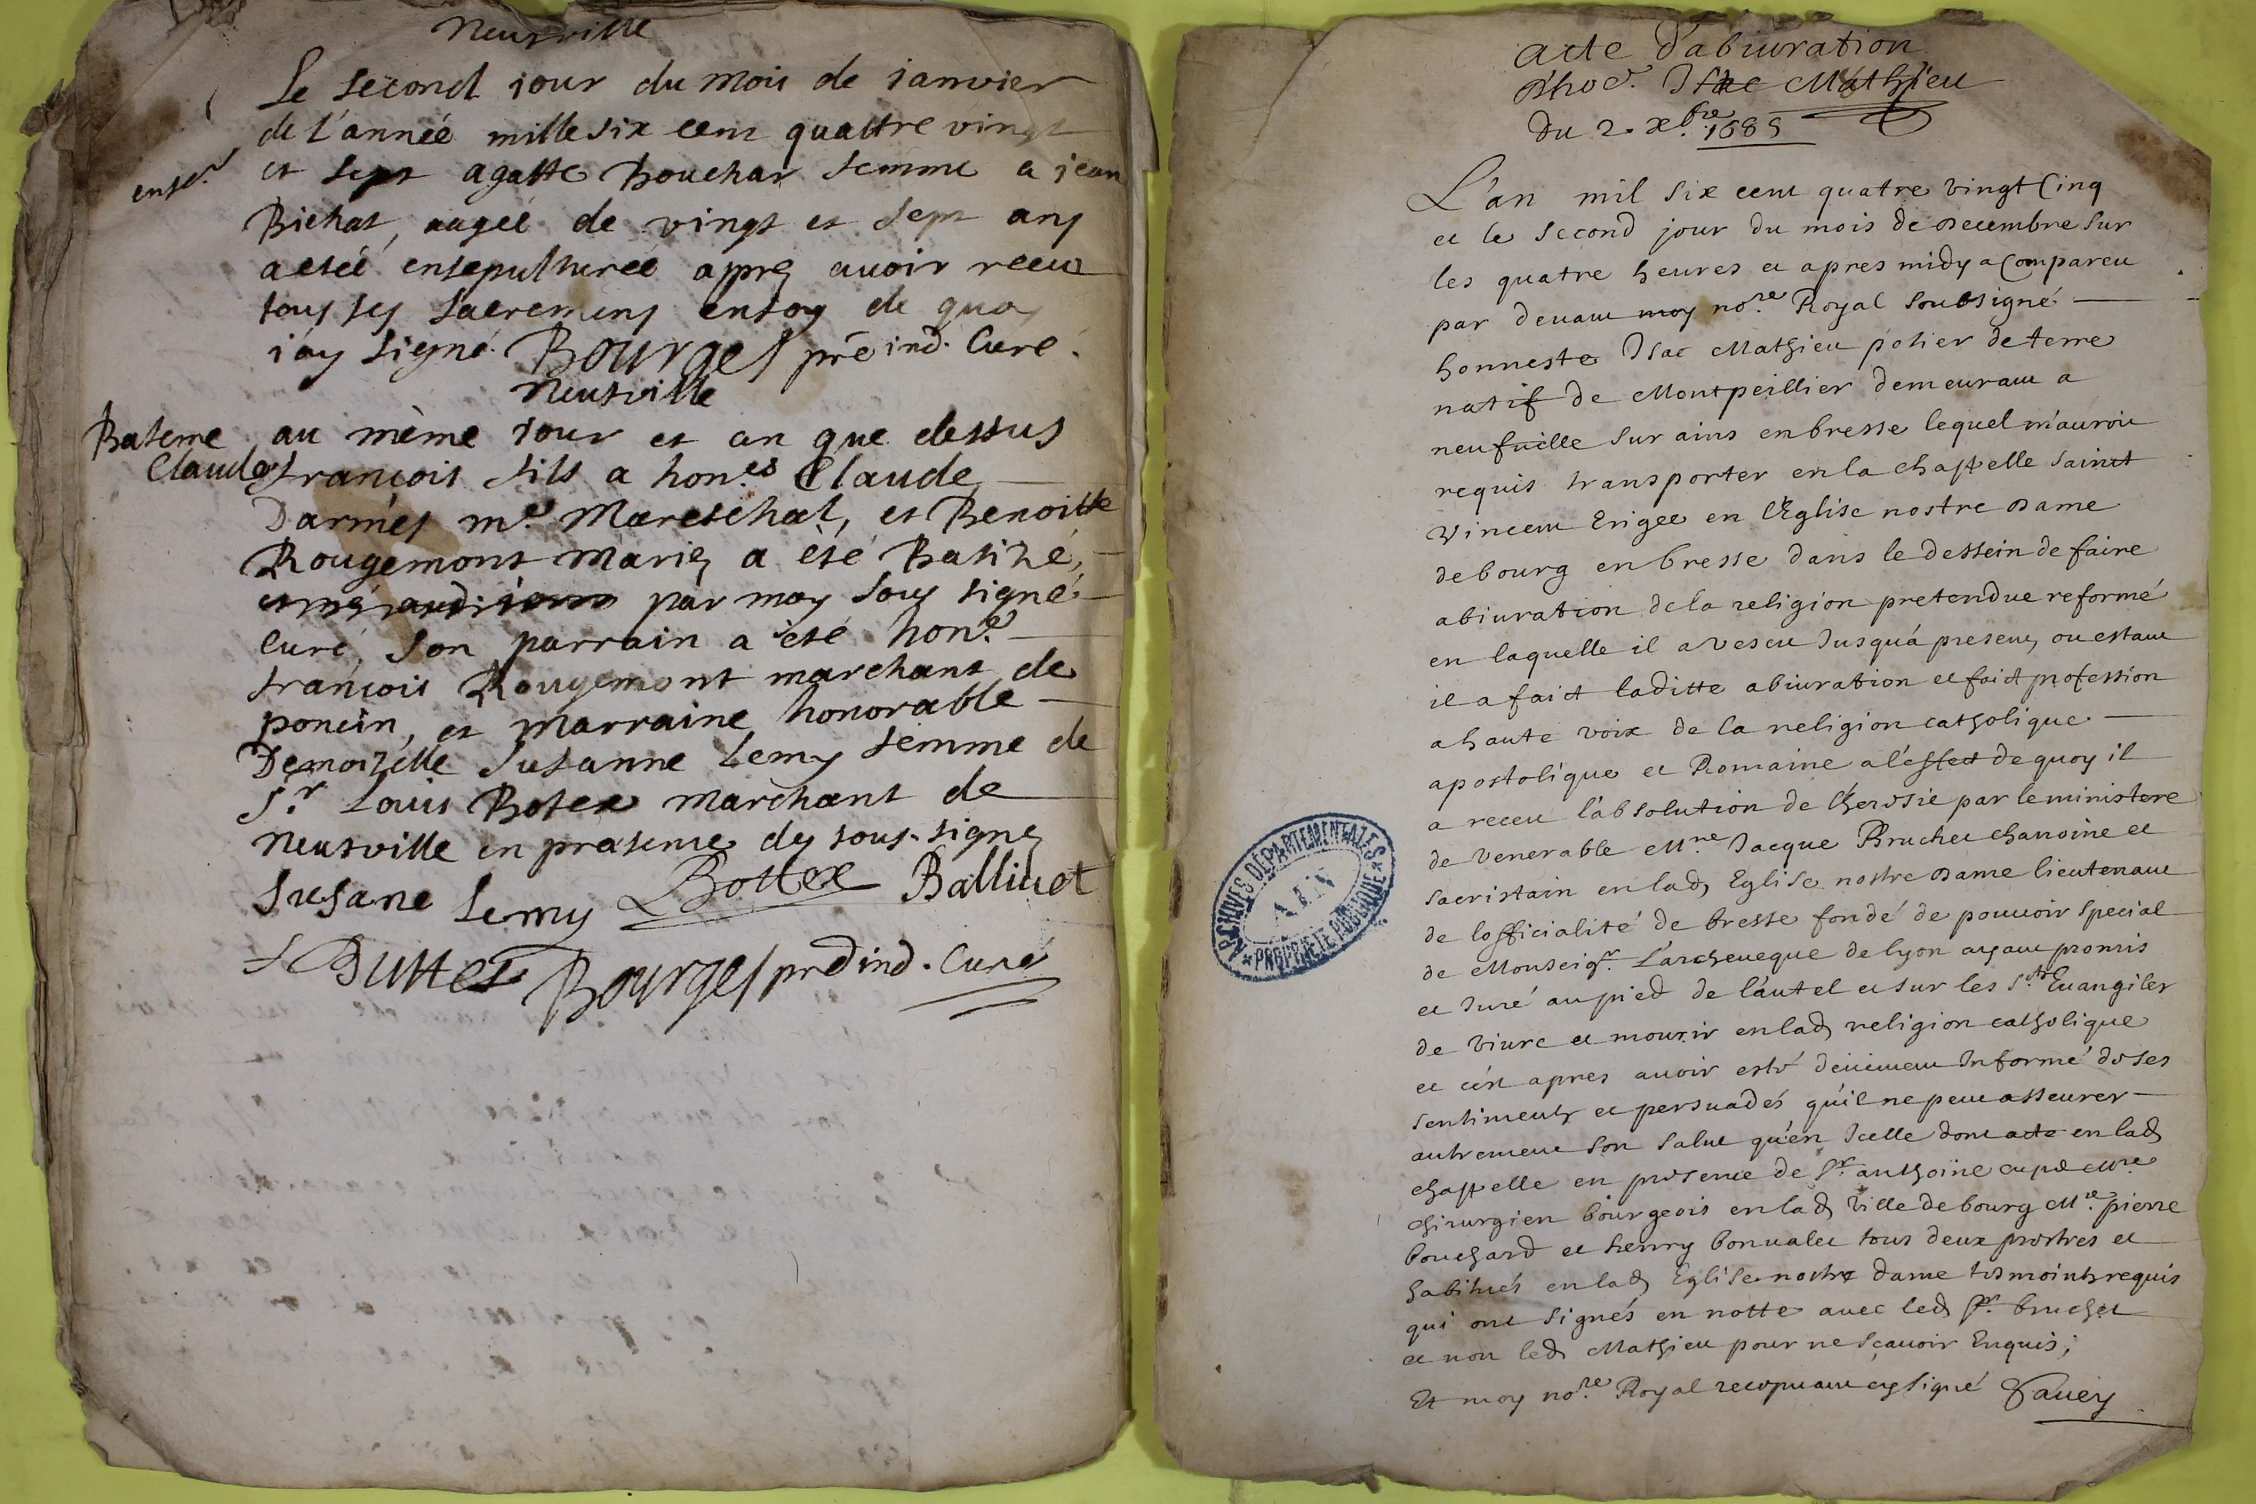 Neufville
Le second iour du mois de ianvier
de l'année mille six cent quattre vingt
ense.r et sept agatte Bouchar femme a jean
Bichat, aagéé de vingt et sept ans
a estéé ensepulturéé appres auoir receu
tous ses sacremens en foy de quoy
i'ay signé. Bourges prê ind. Curé.
Neufville
Bateme au même iour et an que dessus
Claude françois fils a hon.es Claude
Darmes m.e Mareschal, et Benoitte
Rougemont Mariez a été Batizé,
par moy sous signé
curé son parrain a été hon.e
françois Rougemont marchant de
poncin, et marraine honorable
Demoizelle Susanne Lemy femme de
S.r Louis Botex marchant de
Neufville en presence des sous-signez
Susane Lemy Bottex Balliuet
Duttet Bourges pre ind. Curé
acte d'abiuration
d'hoe. Isac Mathieu
du 2. xbre. 1685
L'an mil six cent quatre vingt Cinq
et le second jour du mois de decembre sur
les quatre heures et apres midy a Compareu
par deuant moy no.re Royal soubsigné
honneste Isac Mathieu potier de terre
natif de Montpeillier demeurant a
neufuille sur ains en bresse lequel m'auroit
requis transporter en la chappelle sainct
Vincent Erigee en l'Eglise nostre dame
de bourg en bresse dans le dessein de faire
abiuration de la religion pretendue reformé
en laquelle il a vescu Jusqu'á present, ou estant
il a faict laditte abiuration et faict profession
a haute voix de la religion catholique
apostolique et Romaine a l'effect de quoy il
a receu l'absolution de l'heresie par le ministere
de venerable M.re Jacque Bruchet chanoine et
sacristain en lad. Eglise nostre dame lieutenant
de lofficialité de bresse fondé de pouuoir special
de Monseigr. L'archeueque de lyon ayant promis
et Juré au pied de l'autel et sur les S.ts Euangiles
de viure et mourir en lad. religion catholique
et c'en apres auoir esté deuement Informé de ses
sentiments et persuadés qu'il ne peut asseurer
autrement son salut qu'en Icelle dont acte en lad.
chappelle en presence de S.r anthoine M.re
chirurgien bourgeois en lad. ville de bourg M.re pierre
bouchard et henry bonualet tous deux prestres et
habitués en lad. Eglise nostre dame tesmoints requis
qui ont signés en notte auec led. S.r bruchet
et non led. Mathieu pour ne sçauoir Enquis;
Et moy no.re Royal receuant sy signé Fauey
ARCHIVES DÉPARTEMENTALES
AIN
PROPRIÉTÉ PUBLIQUE